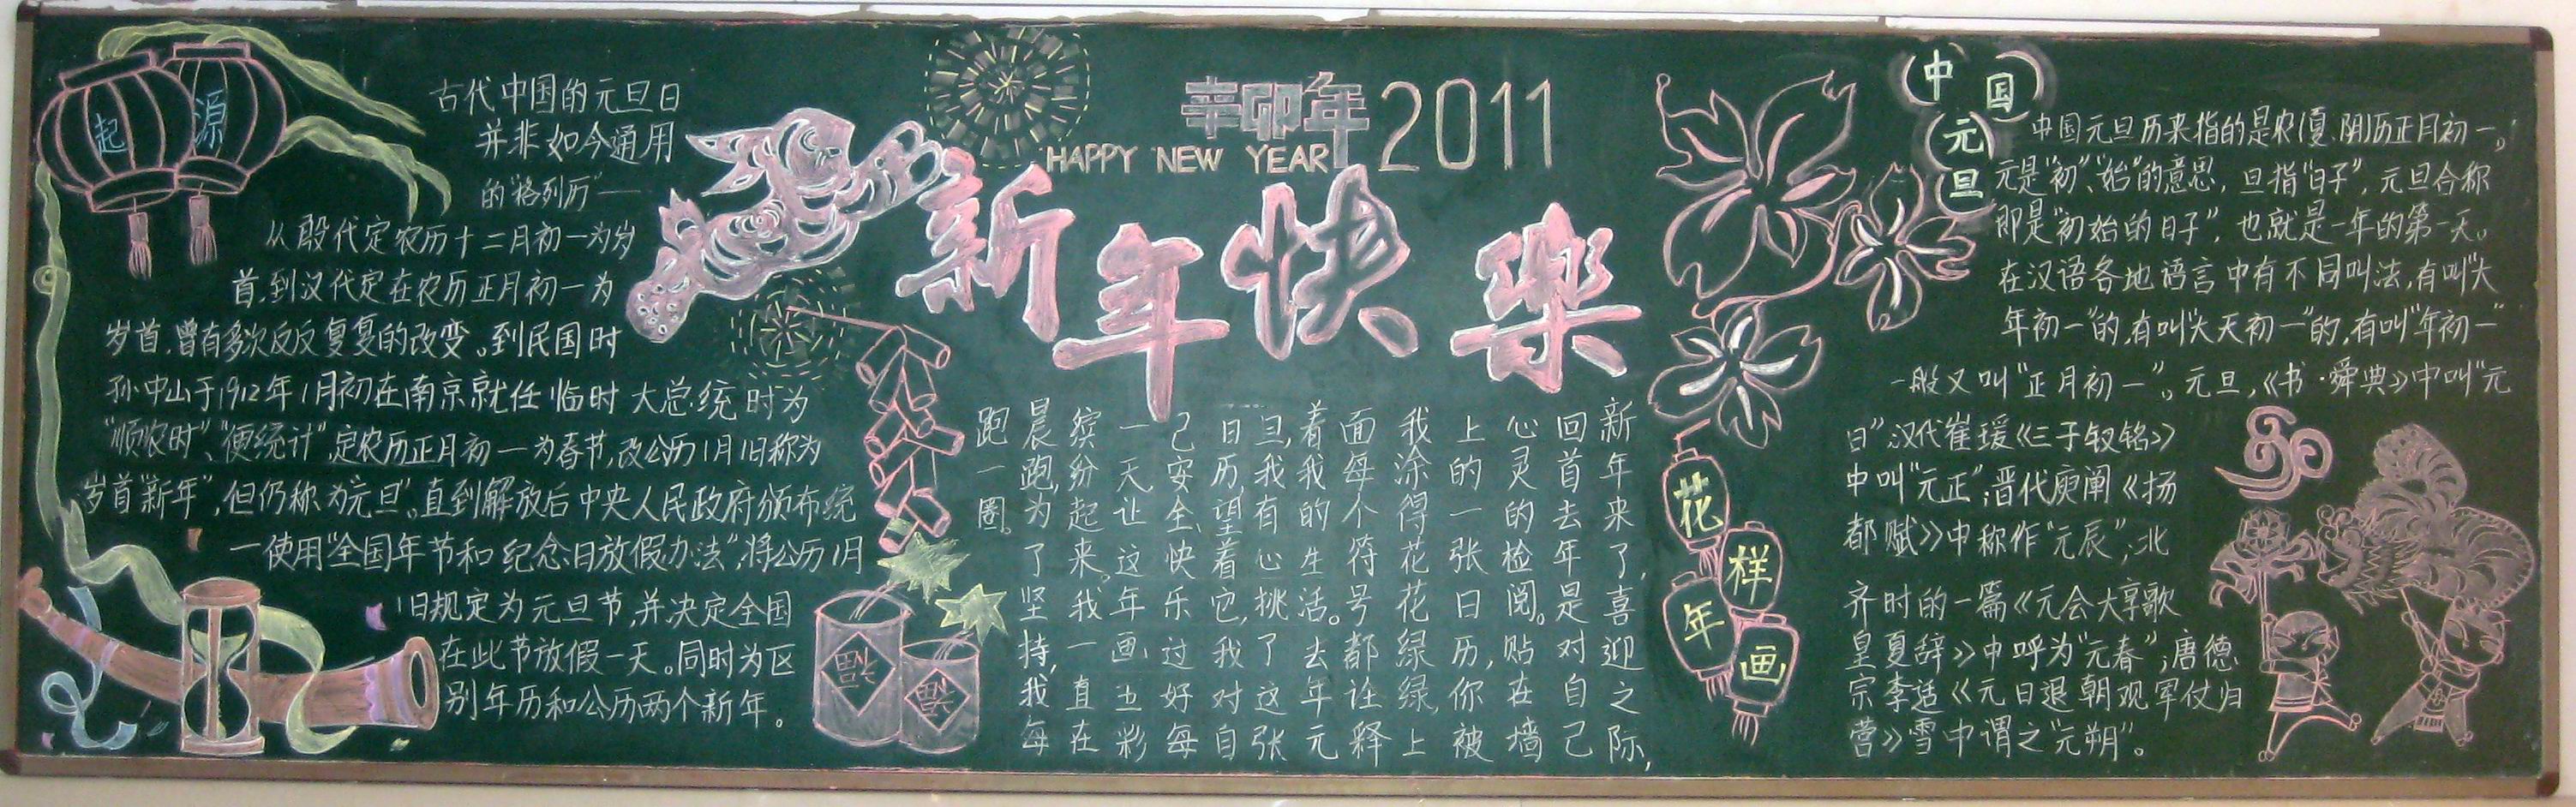 起源
古代中国的元旦日
并非如今通用
的"格列历"——
从殷代定农历十二月初一为岁
首,到汉代定在农历正月初一为
岁首,曾有多次反反复复的改变。到民国时
孙中山于1912年1月初在南京就任临时大总统时为
"顺农时"、"便统计",定农历正月初一为春节,改公历1月1日称为
岁首"新年",但仍称为"元旦"。直到解放后中央人民政府颁布统
一使用"全国年节和纪念日放假办法",将公历1月
1日规定为元旦节,并决定全国
在此节放假一天。同时为区
别年历和公历两个新年。
辛卯年 2011
HAPPY NEW YEAR
新年快樂
新年来了,喜迎之际,
回首去年是对自己
心灵的检阅。贴在墙
上的一张日历,你被
我涂得花花绿绿,上
面每个符号都诠释
着我的生活。去年元
旦,我有心挑了这张
日历,望着它,我对自
己安全、快乐过好每
一天让这年画五彩
缤纷起来,我一直在
晨跑,为了坚持,我每
跑一圈。
福
福
花样年画
中国元旦
中国元旦历来指的是农(夏、阴)历正月初一。
元是"初"、"始"的意思,旦指"日子",元旦合称
即是"初始的日子",也就是一年的第一天。
在汉语各地语言中有不同叫法,有叫"大
年初一"的,有叫"大天初一"的,有叫"年初一"
一般又叫"正月初一"。元旦,《书·舜典》中叫"元
日",汉代崔瑗《三子钗铭》
中叫"元正";晋代庾阐《扬
都赋》中称作"元辰";北
齐时的一篇《元会大享歌
皇夏辞》中呼为"元春";唐德
宗李适《元日退朝观军仗归
营》雪中谓之"元朔"。